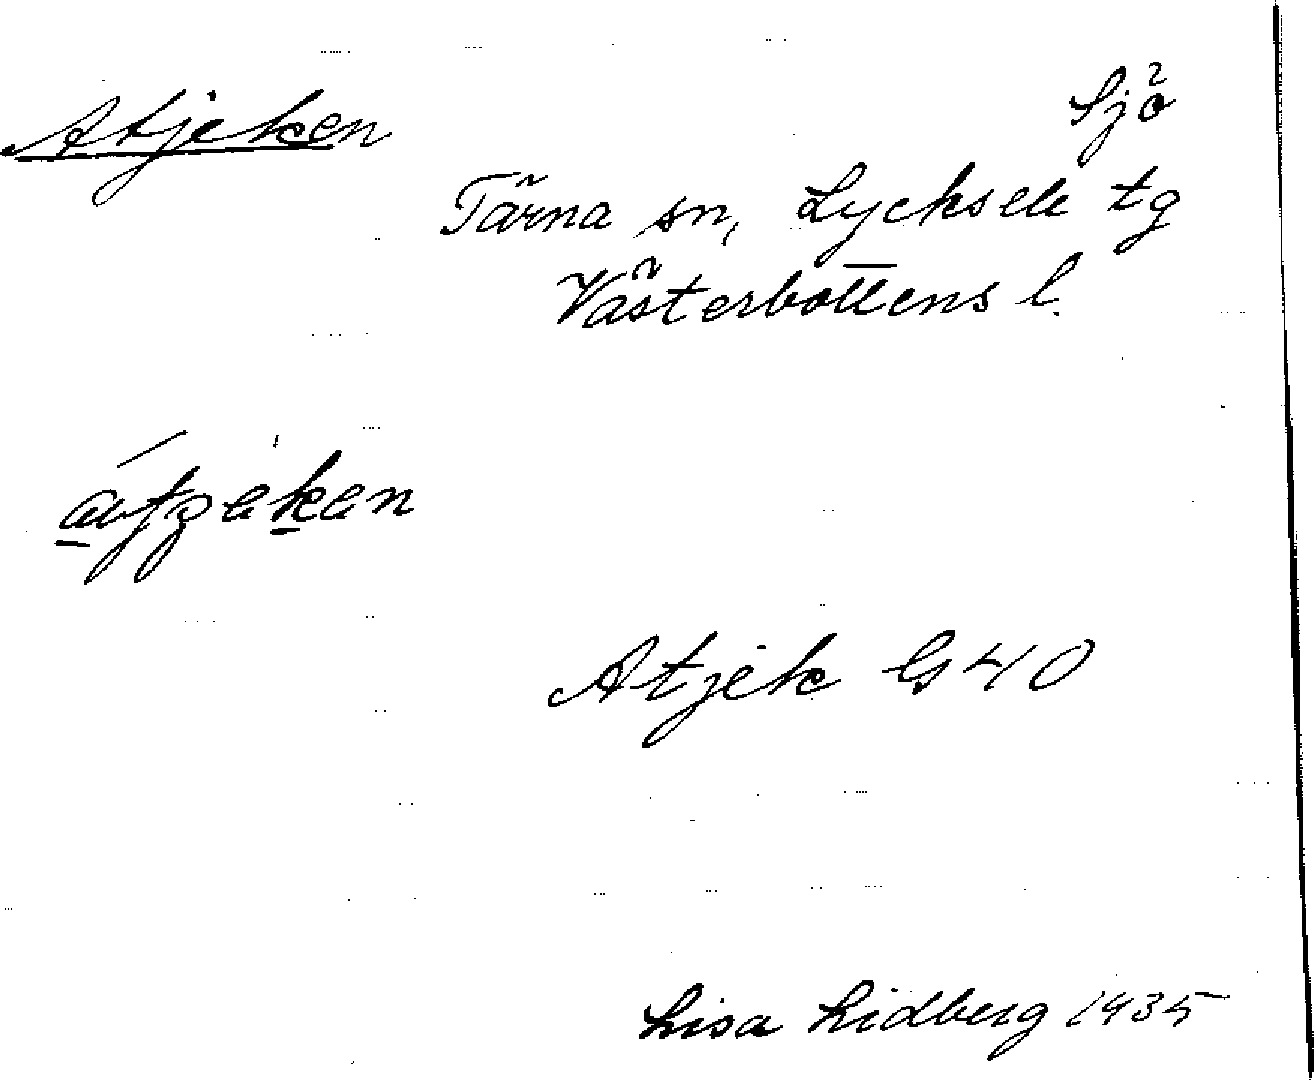 Atjeken
Sjö
Tärna sn, Lycksele tg
Västerbottens l.
Atjek G 40
Lisa Lidberg 1935